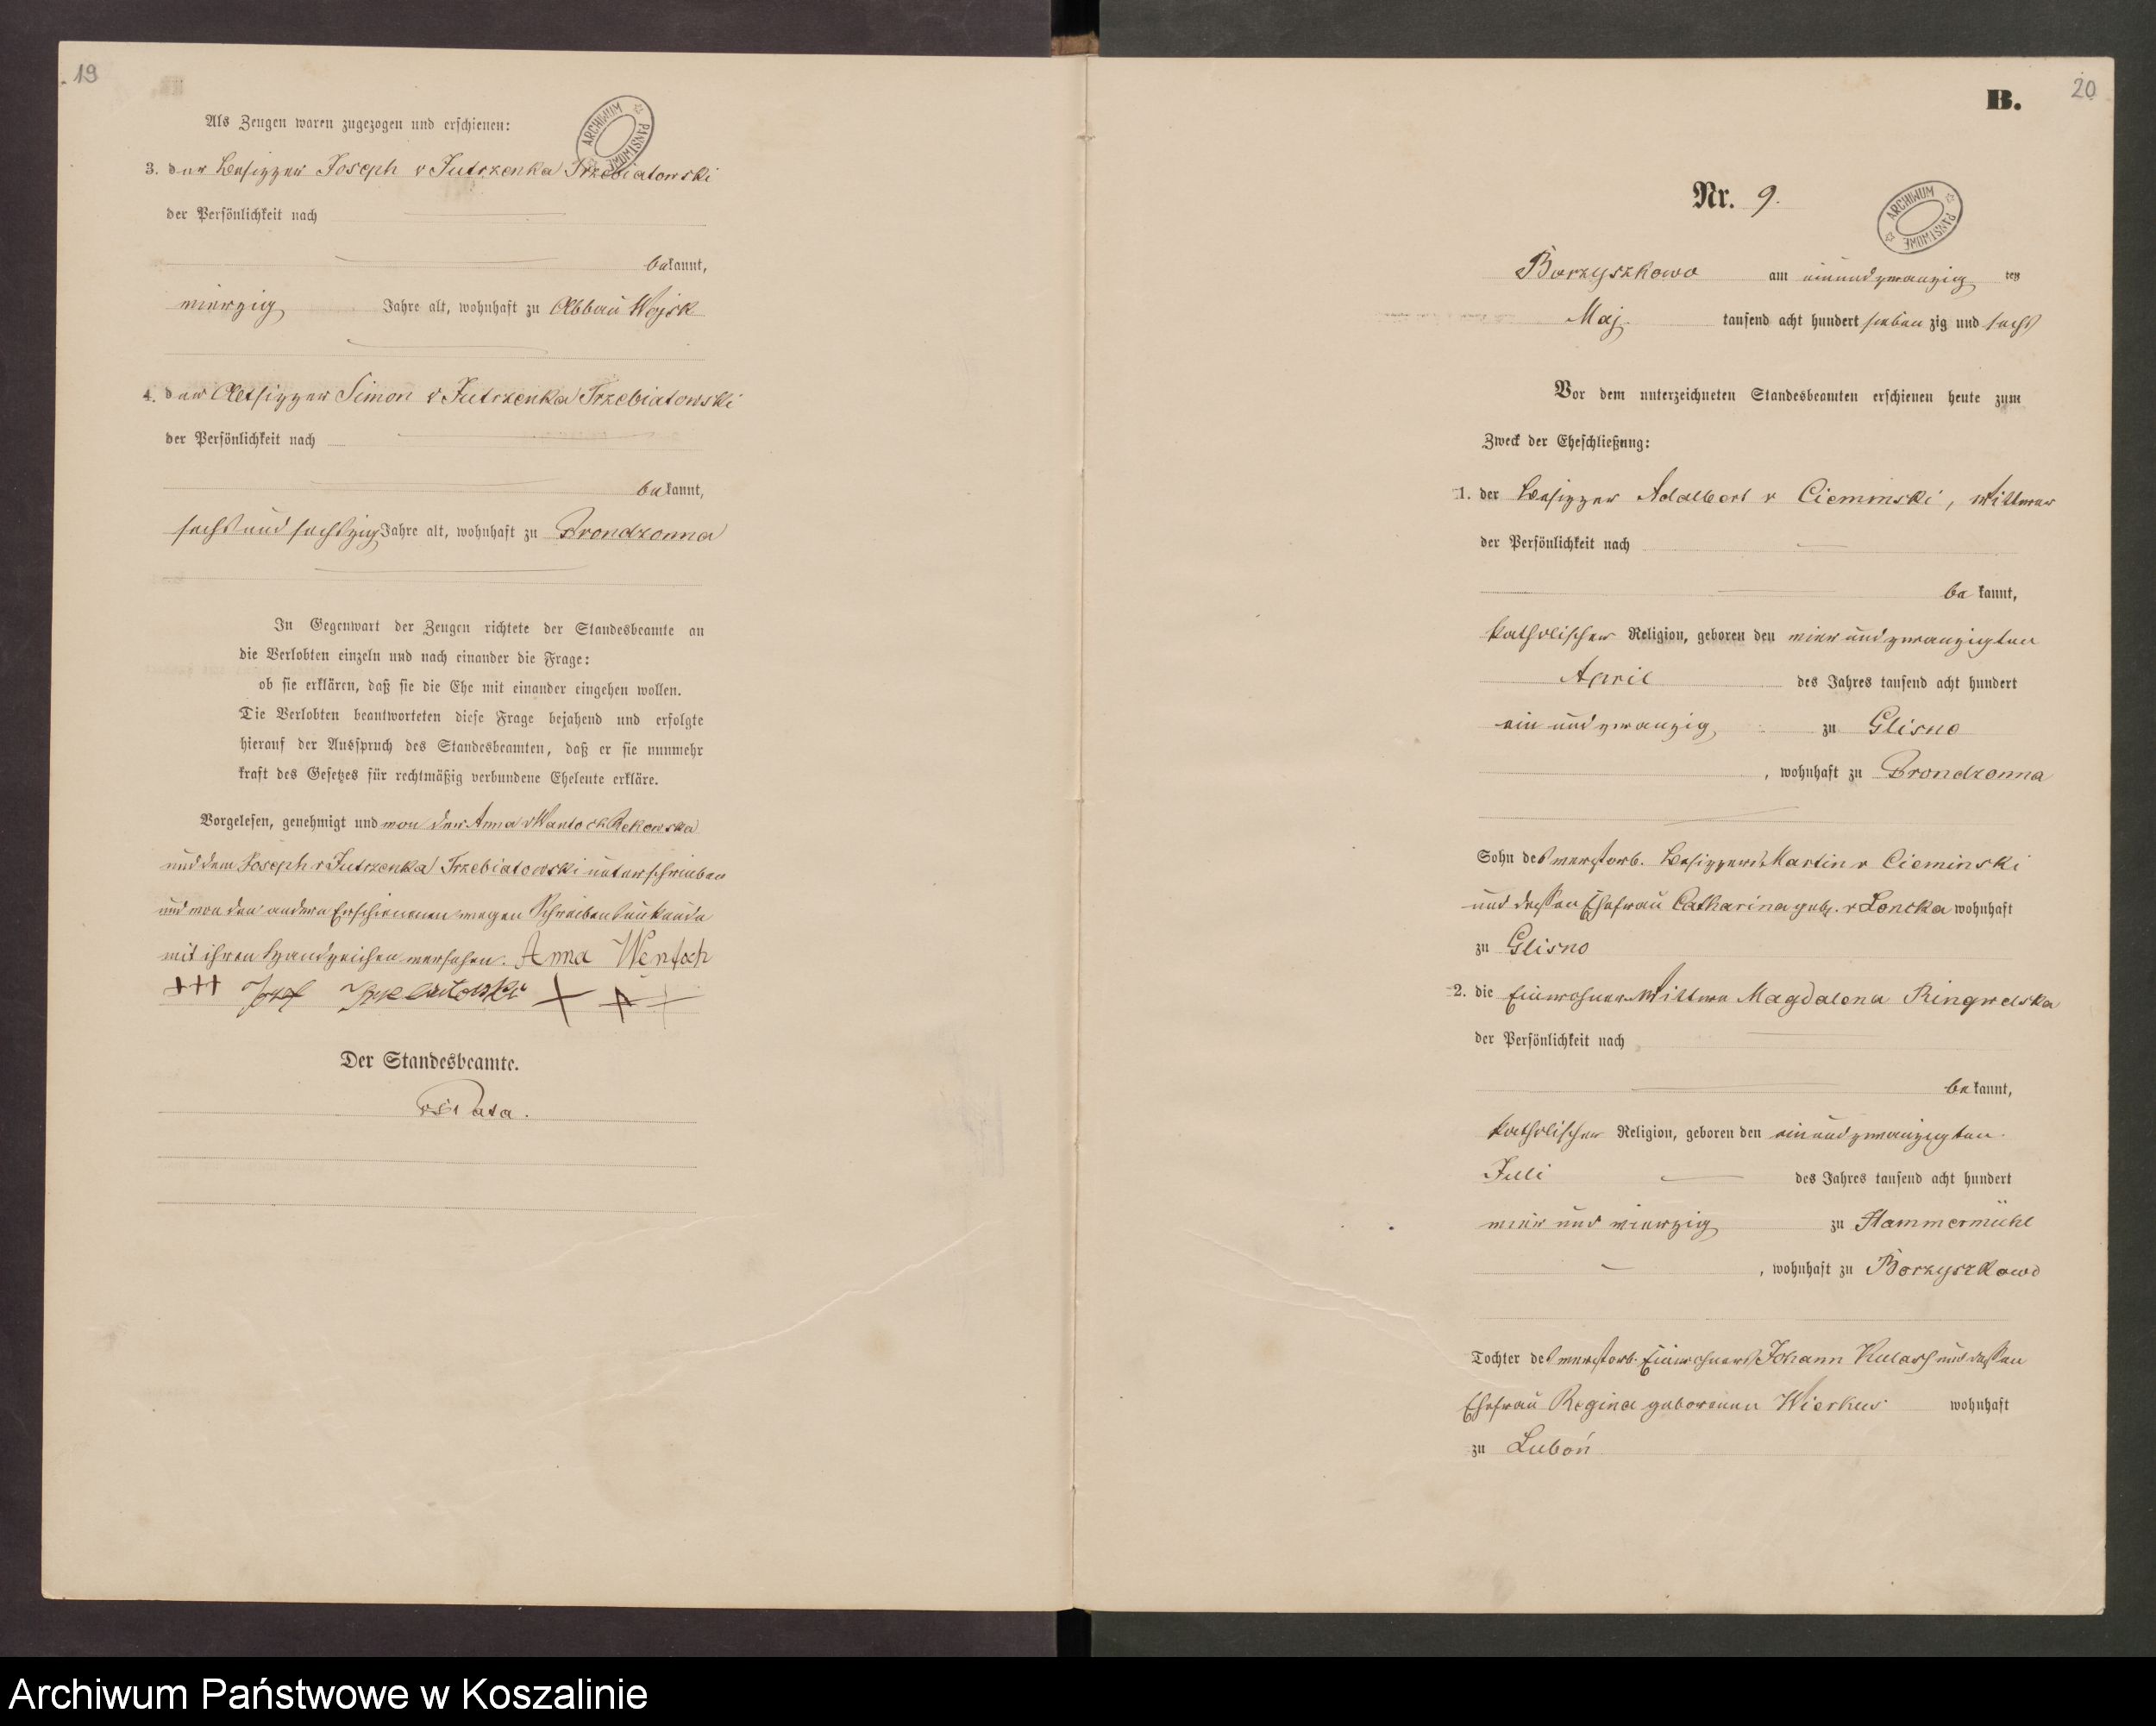 19
Als Zeugen waren zugezogen und erschienen:
ARCHIWUM PAŃSTWOWE
3. der Besizzer Joseph v Jutrzenka Trzebiatowski
der Persönlichkeit nach
bekannt,
vierzig Jahre alt, wohnhaft zu Abbau Wojsk
4. der Altsizzer Simon v Jutrzenka Trzebiatowski
der Persönlichkeit nach
bekannt,
sechs und sechszig Jahre alt, wohnhaft zu Brondzonna
In Gegenwart der Zeugen richtete der Standesbeamte an
die Verlobten einzeln und nach einander die Frage:
ob sie erklären, daß sie die Ehe mit einander eingehen wollen.
Die Verlobten beantworteten diese Frage bejahend und erfolgte
hierauf der Ausspruch des Standesbeamten, daß er sie nunmehr
kraft des Gesetzes für rechtmäßig verbundene Eheleute erkläre.
Vorgelesen, genehmigt und von der Anna v Wantoch Rekowska
und dem Joseph v Jutrzenka Trzebiatowski unterschrieben
und von den andern Erschienenen wegen Schreibensunkunde
mit ihren Handzeichen versehen. Anna Wentoch
+++ Josef Trzebiatowski + + +
Der Standesbeamte.
20
B.
Nr. 9.
ARCHIWUM PAŃSTWOWE
Borzyszkowo am einundzwanzig ten
Maj tausend acht hundert sieben zig und sechs
Vor dem unterzeichneten Standesbeamten erschienen heute zum
Zweck der Eheschließung:
1. der Besizzer Adalbert v Cieminski, Wittwer
der Persönlichkeit nach
bekannt,
katholischer Religion, geboren den vier und zwanzigten
April des Jahres tausend acht hundert
ein und zwanzig zu Glisno
, wohnhaft zu Brondzonna
Sohn des verstorb. Besizzers Martin v Cieminski
und dessen Ehefrau Catharina geb. v Loncka wohnhaft
zu Glisno
2. die Einwohner Wittwe Magdalena Ringwelska
der Persönlichkeit nach
bekannt,
katholischer Religion, geboren den einundzwanzigten
Juli des Jahres tausend acht hundert
vier und vierzig zu Hammermühl
, wohnhaft zu Borzyszkowo
Tochter des verstorb. Einwohners Johann Kulas und dessen
Ehefrau Regina geborenen Wierkus wohnhaft
zu Luboń
Archiwum Państwowe w Koszalinie